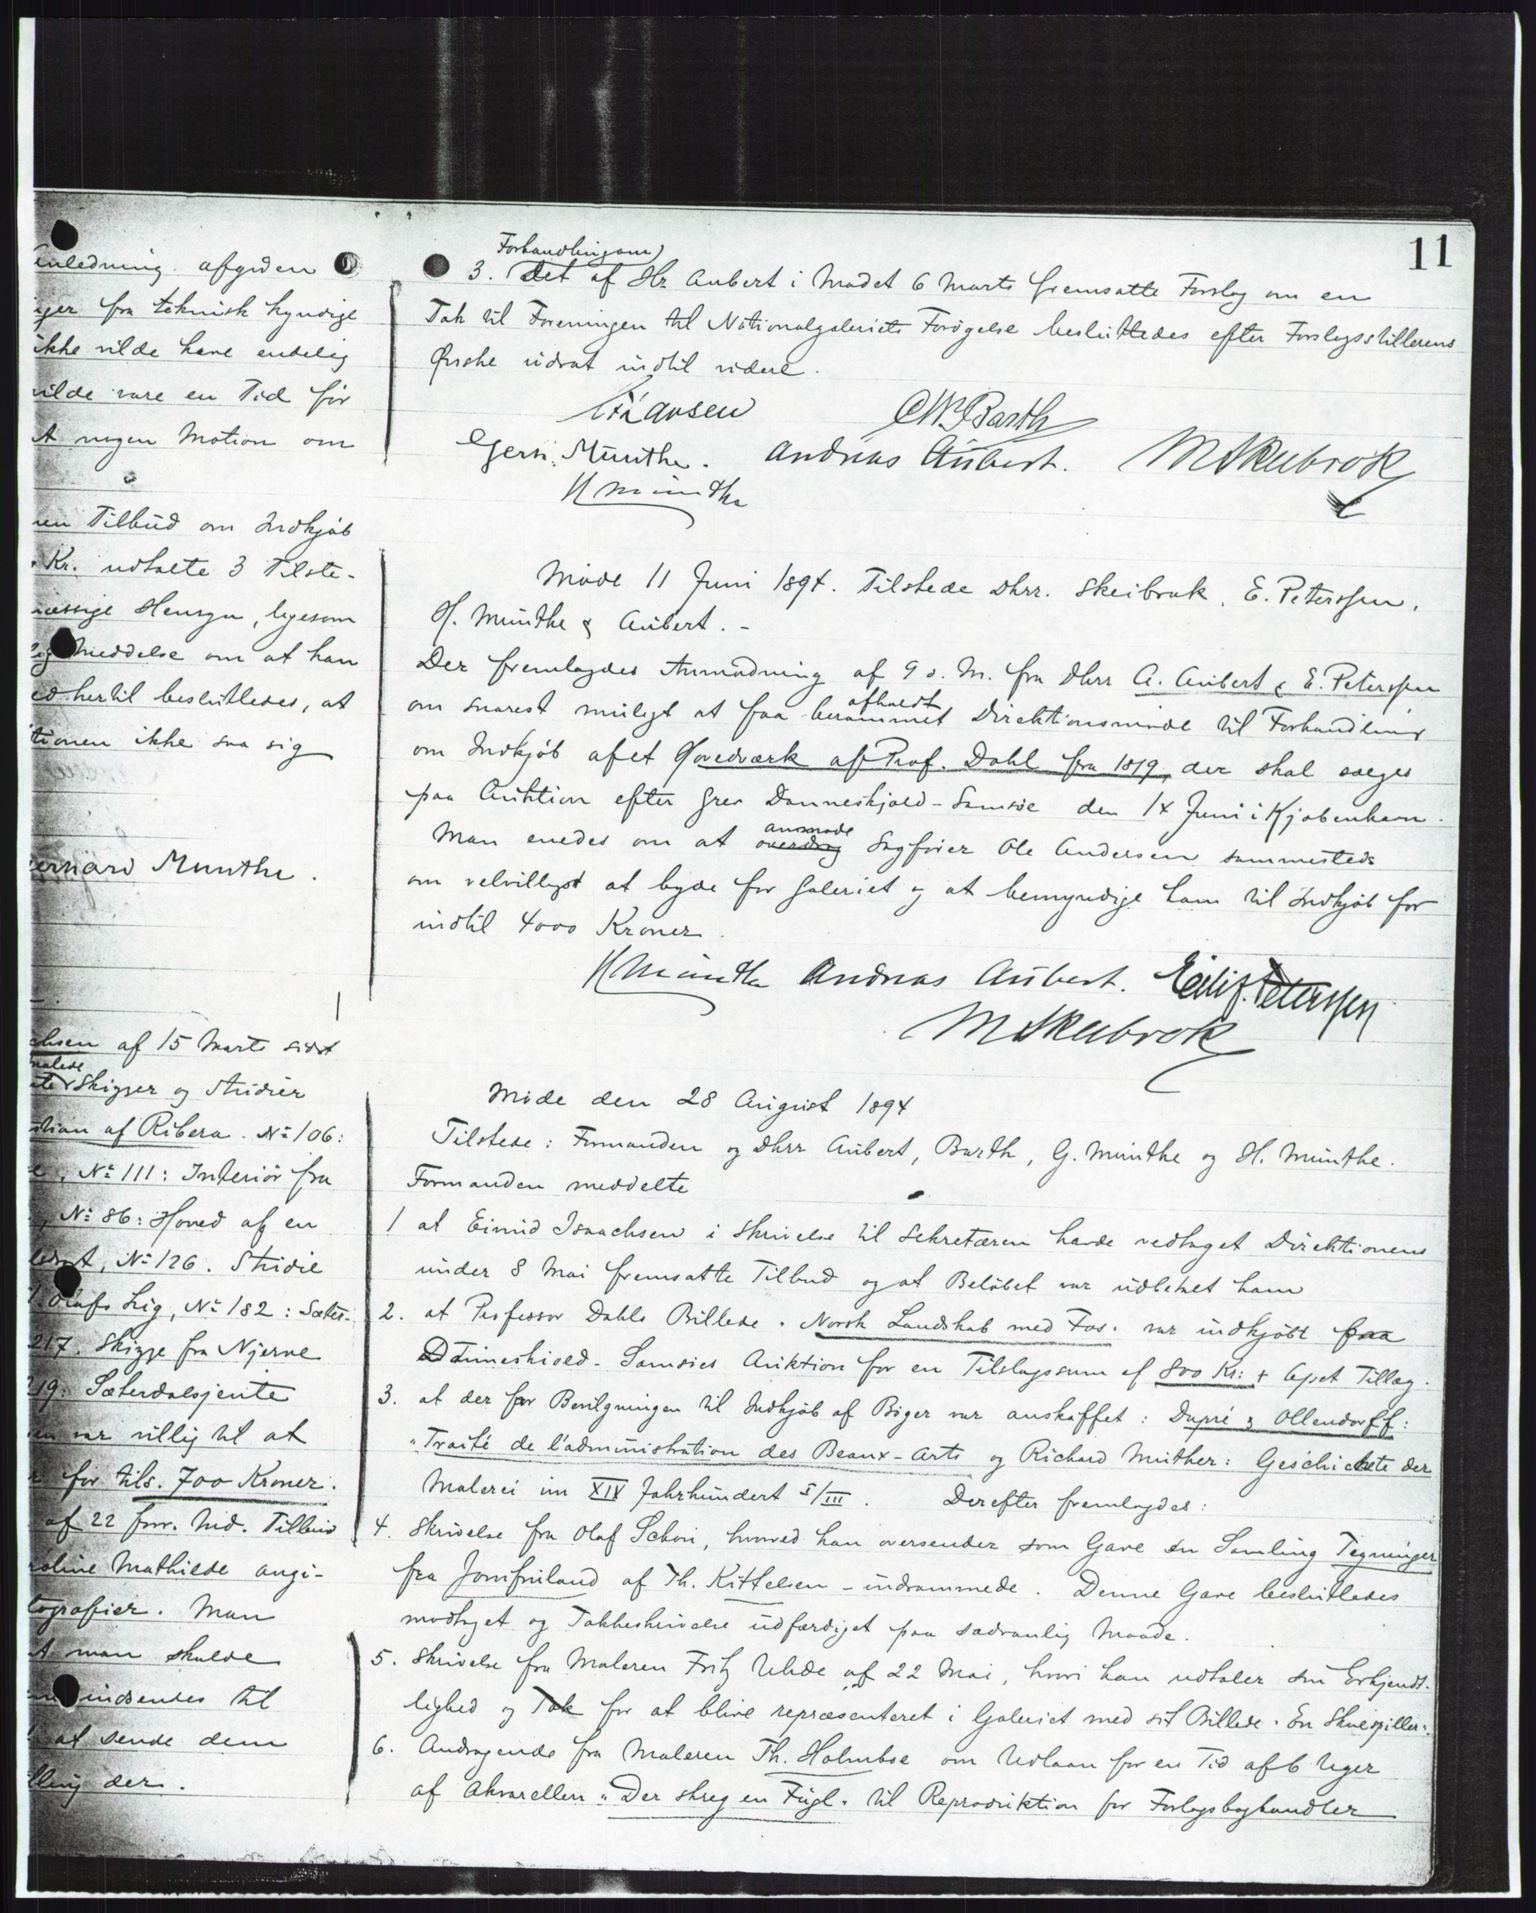 11
Anledning afgiven
fra teknisk kyndige
ikke vilde have endelig
vilde vare en Tid før
nogen Motion om
Tilbud om Indkjøb
Kr. udtalte 3 Tilste-
Hensyn, ligesom
Meddelse om at han
hertil besluttedes, at
ikke saa sig
Gerhard Munthe.
af 15 Marts sidst
malede
Skizzer og Studier
af Ribera. No 106:
No 111: Interiør fra
No 86: Hoved af en
No 126. Studie
Olafs Lig, No 182: Sæter-
217. Skizze fra Njerve
219: Sæterdalsjente
var villig til at
for tils. 700 Kroner.
af 22 forr. Md. Tilbud
Mathilde angi-
Man
man skulde
indsendes til
at sende dem
der.
Forhandlingerne
3. Det af Hr. Aubert i Mødet 6 Marts fremsatte Forslag om en
Tak til Foreningen til Nationalgaleriets Forøgelse besluttedes efter Forslagsstillerens
Ønske udsat indtil videre.
CW Barth
Gerh. Munthe. Andreas Aubert. M Skeibrok
H Munthe
Møde 11 Juni 1894. Tilstede Dhrr. Skeibrok, E. Peterssen,
H. Munthe & Aubert. -
Der fremlagdes Anmodning af 9 d. M. fra Dhrr A. Aubert & E. Peterssen
om snarest muligt at faa berammet afholdt Direktionsmøde til Forhandling
om Indkjøb af et Hovedværk af Prof. Dahl fra 1819, der skal sælges
paa Auktion efter Grev Danneskjold-Samsøe den 14 Juni i Kjøbenhavn.
Man enedes om at overdrag anmode Sagfører Ole Andersen sammesteds
om velvilligst at byde for Galeriet og at bemyndige ham til Indkjøb for
indtil 4000 Kroner.
H Munthe Andreas Aubert. Eilif Peterssen
M Skeibrok
Møde den 28 August 1894
Tilstede: Formanden og Dhrr Aubert, Barth, G. Munthe og H. Munthe.
Formanden meddelte
1 at Eivind Isaachsen i Skrivelse til Sekretæren havde vedtaget Direktionens
under 8 Mai fremsatte Tilbud og at Beløbet var udbetalt ham
2. at Professor Dahls Billede "Norsk Landskab med Fos" var indkjøbt paa
Danneskiold-Samsøes Auktion for en Tilslagssum af 800 Kr: + Tillæg.
3. at der for Bevilgningen til Indkjøb af Bøger var anskaffet: Dupré & Ollendorff:
"Traité de l'administration des Beaux-Arts og Richard Muther: Geschichte der
Malerei im XIX Jahrhundert I/III. Derefter fremlagdes:
4. Skrivelse fra Olaf Schou, hvorved han oversender som Gave en Samling Tegninger
fra Jomfruland af Th. Kittelsen - indrammede. Denne Gave besluttedes
modtaget og Takkeskrivelse udfærdiget paa sædvanlig Maade.
5. Skrivelse fra Maleren Fritz Uhde af 22 Mai, hvori han udtaler sin Erkjendt-
lighed og Tak for at blive repræsenteret i Galeriet med sit Billede "En Skuespiller".
6. Andragende fra Maleren Th. Holmboe om Udlaan for en Tid af 6 Uger
af Akvarellen "Der skreg en Fugl" til Reproduktion for Forlagsboghandler